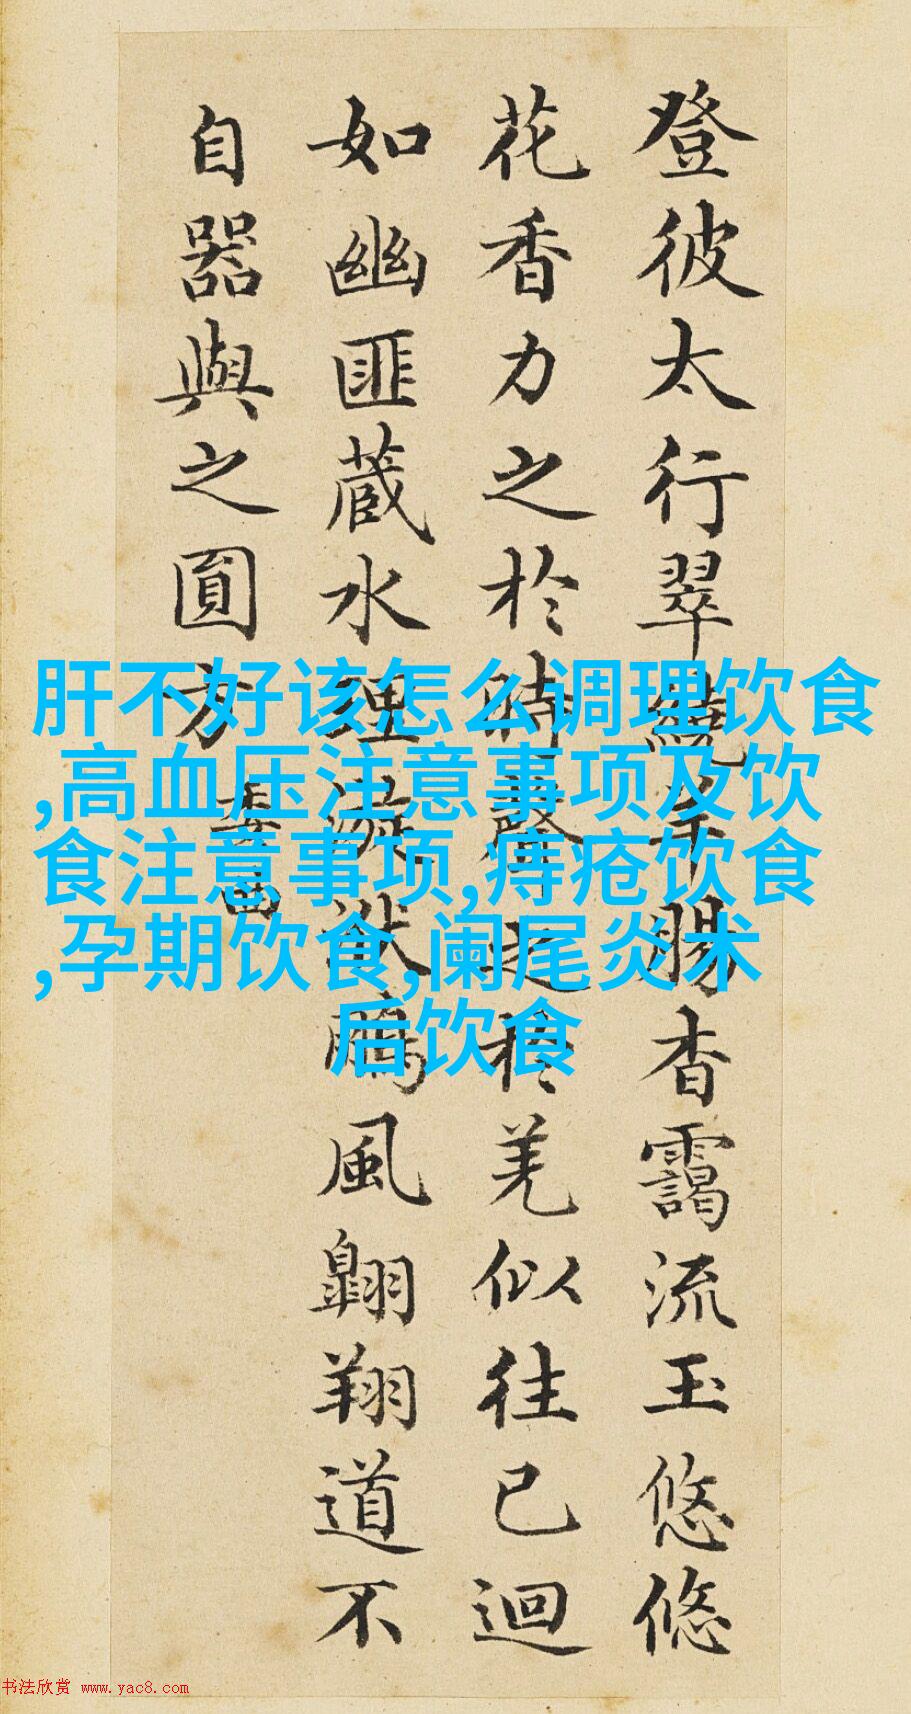 登彼太行翠繞羊腸杳靄流玉悠悠
花香力之於時聲之於羌似往已迴
如幽匪蔵水理漩洑鵬風翺翔道不
自器與之圓方
委曲
肝不好该怎么调理饮食
,高血压注意事项及饮
食注意事项,痔疮饮食
,孕期饮食,阑尾炎术
后饮食
书法欣赏 www.yac8.com